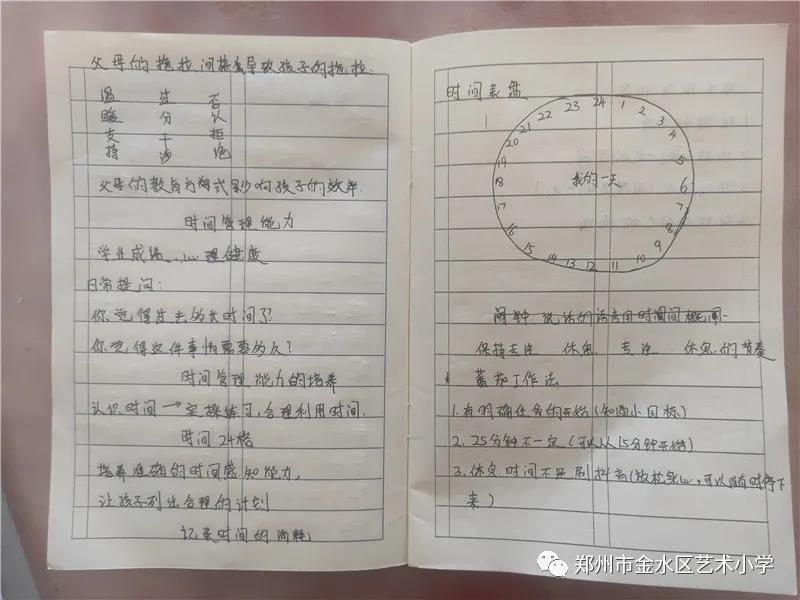 父母的拖拉间接导致孩子的拖拉.
温 过 否
暖 分 认
支 干 拒
持 涉 绝
父母的教育方式影响孩子的效率.
时间管理能力
学业成绩、心理健康
日常提问：
你觉得过去多长时间了？
你觉得这件事情需要多久？
时间管理能力的培养
认识时间→实操练习，合理利用时间.
时间24格
培养准确的时间感知能力，
让孩子列出合理的计划
记录时间的消耗
时间表盘
24 1 2 3 4 5 6 7 8 9 10 11 12 13 14 15 16 17 18 19 20 21 22 23
我的一天
闹钟 说话的语言用时间
保持专注 休息 专注 休息的节奏
番茄工作法
1.有明确任务的开始（知道小目标）
2.25分钟不一定（可以从15分钟开始）
3.休息时间不是刷抖音（放松身心，可以随时停下
来）
郑州市金水区艺术小学